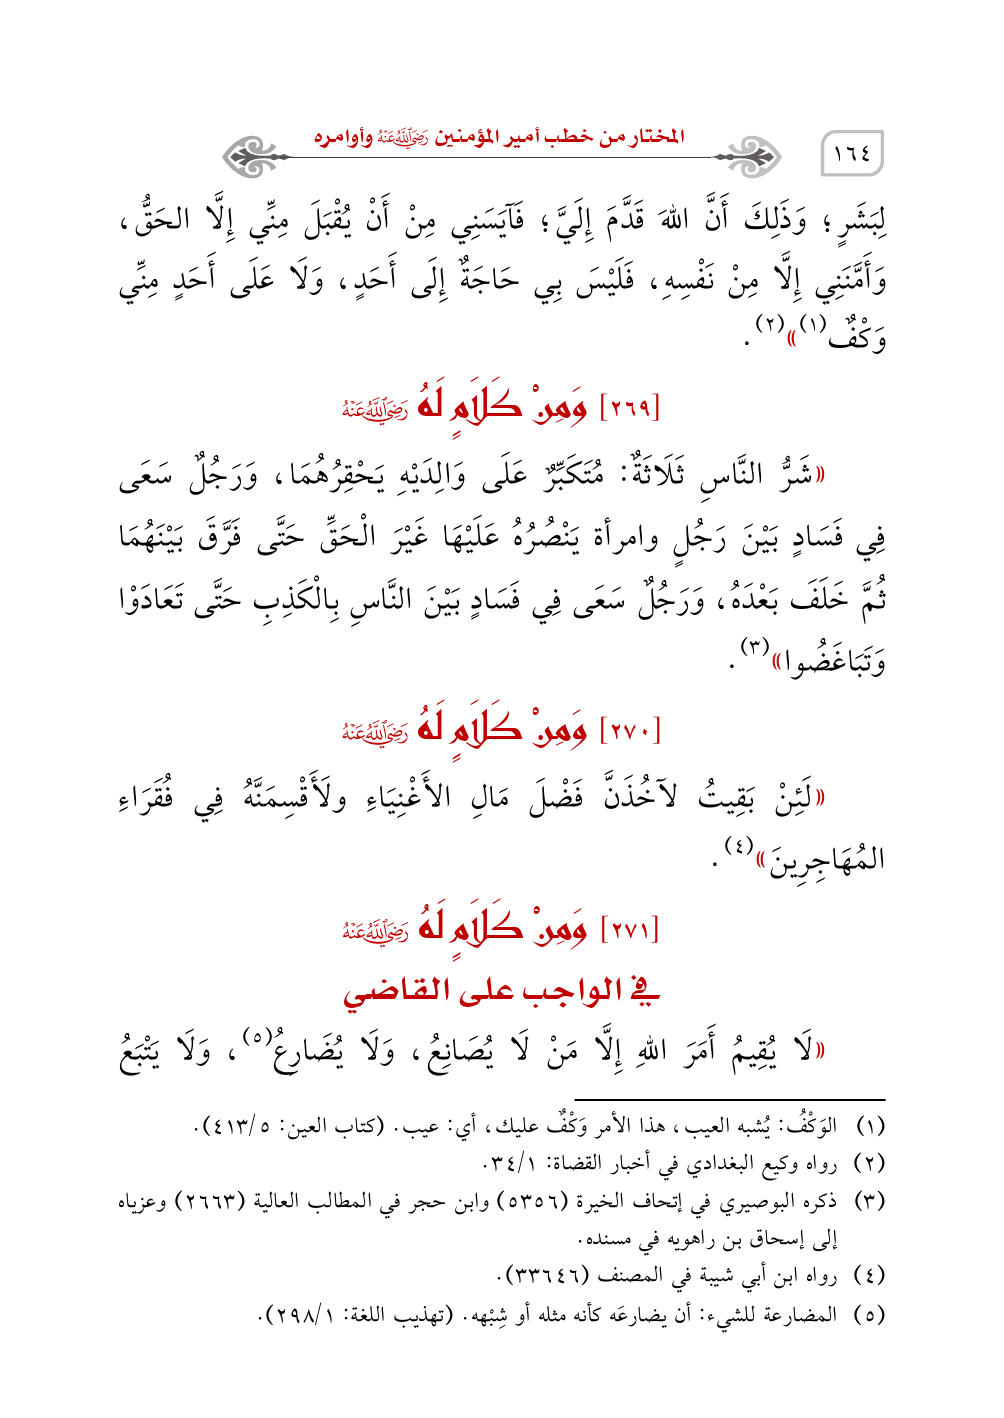 ١٦٤
المختار من خطب أمير المؤمنين رَضِيَ اللَّهُ عَنْهُ وأوامره
لِبَشَرٍ؛ وَذَلِكَ أَنَّ اللهَ قَدَّمَ إِلَيَّ؛ فَآيَسَنِي مِنْ أَنْ يُقْبَلَ مِنِّي إِلَّا الحَقُّ،
وَأَمَّنَنِي إِلَّا مِنْ نَفْسِهِ، فَلَيْسَ بِي حَاجَةٌ إِلَى أَحَدٍ، وَلَا عَلَى أَحَدٍ مِنِّي
وَكْفٌ(١)»(٢).
[٢٦٩] وَمِنْ كَلَامٍ لَهُ رَضِيَ اللَّهُ عَنْهُ
«شَرُّ النَّاسِ ثَلَاثَةٌ: مُتَكَبِّرٌ عَلَى وَالِدَيْهِ يَحْقِرُهُمَا، وَرَجُلٌ سَعَى
فِي فَسَادٍ بَيْنَ رَجُلٍ وامرأة يَنْصُرُهُ عَلَيْهَا غَيْرَ الْحَقِّ حَتَّى فَرَّقَ بَيْنَهُمَا
ثُمَّ خَلَفَ بَعْدَهُ، وَرَجُلٌ سَعَى فِي فَسَادٍ بَيْنَ النَّاسِ بِالْكَذِبِ حَتَّى تَعَادَوْا
وَتَبَاغَضُوا»(٣).
[٢٧٠] وَمِنْ كَلَامٍ لَهُ رَضِيَ اللَّهُ عَنْهُ
«لَئِنْ بَقِيتُ لآخُذَنَّ فَضْلَ مَالِ الأَغْنِيَاءِ ولَأَقْسِمَنَّهُ فِي فُقَرَاءِ
المُهَاجِرِينَ»(٤).
[٢٧١] وَمِنْ كَلَامٍ لَهُ رَضِيَ اللَّهُ عَنْهُ
في الواجب على القاضي
«لَا يُقِيمُ أَمَرَ اللهِ إِلَّا مَنْ لَا يُصَانِعُ، وَلَا يُضَارِعُ(٥)، وَلَا يَتْبَعُ
(١) الوَكْفُ: يُشبه العيب، هذا الأمر وَكْفٌ عليك، أي: عيب. (كتاب العين: ٤١٣/٥).
(٢) رواه وكيع البغدادي في أخبار القضاة: ٣٤/١.
(٣) ذكره البوصيري في إتحاف الخيرة (٥٣٥٦) وابن حجر في المطالب العالية (٢٦٦٣) وعزياه
إلى إسحاق بن راهويه في مسنده.
(٤) رواه ابن أبي شيبة في المصنف (٣٣٦٤٦).
(٥) المضارعة للشيء: أن يضارعَه كأنه مثله أو شِبْهه. (تهذيب اللغة: ٢٩٨/١).